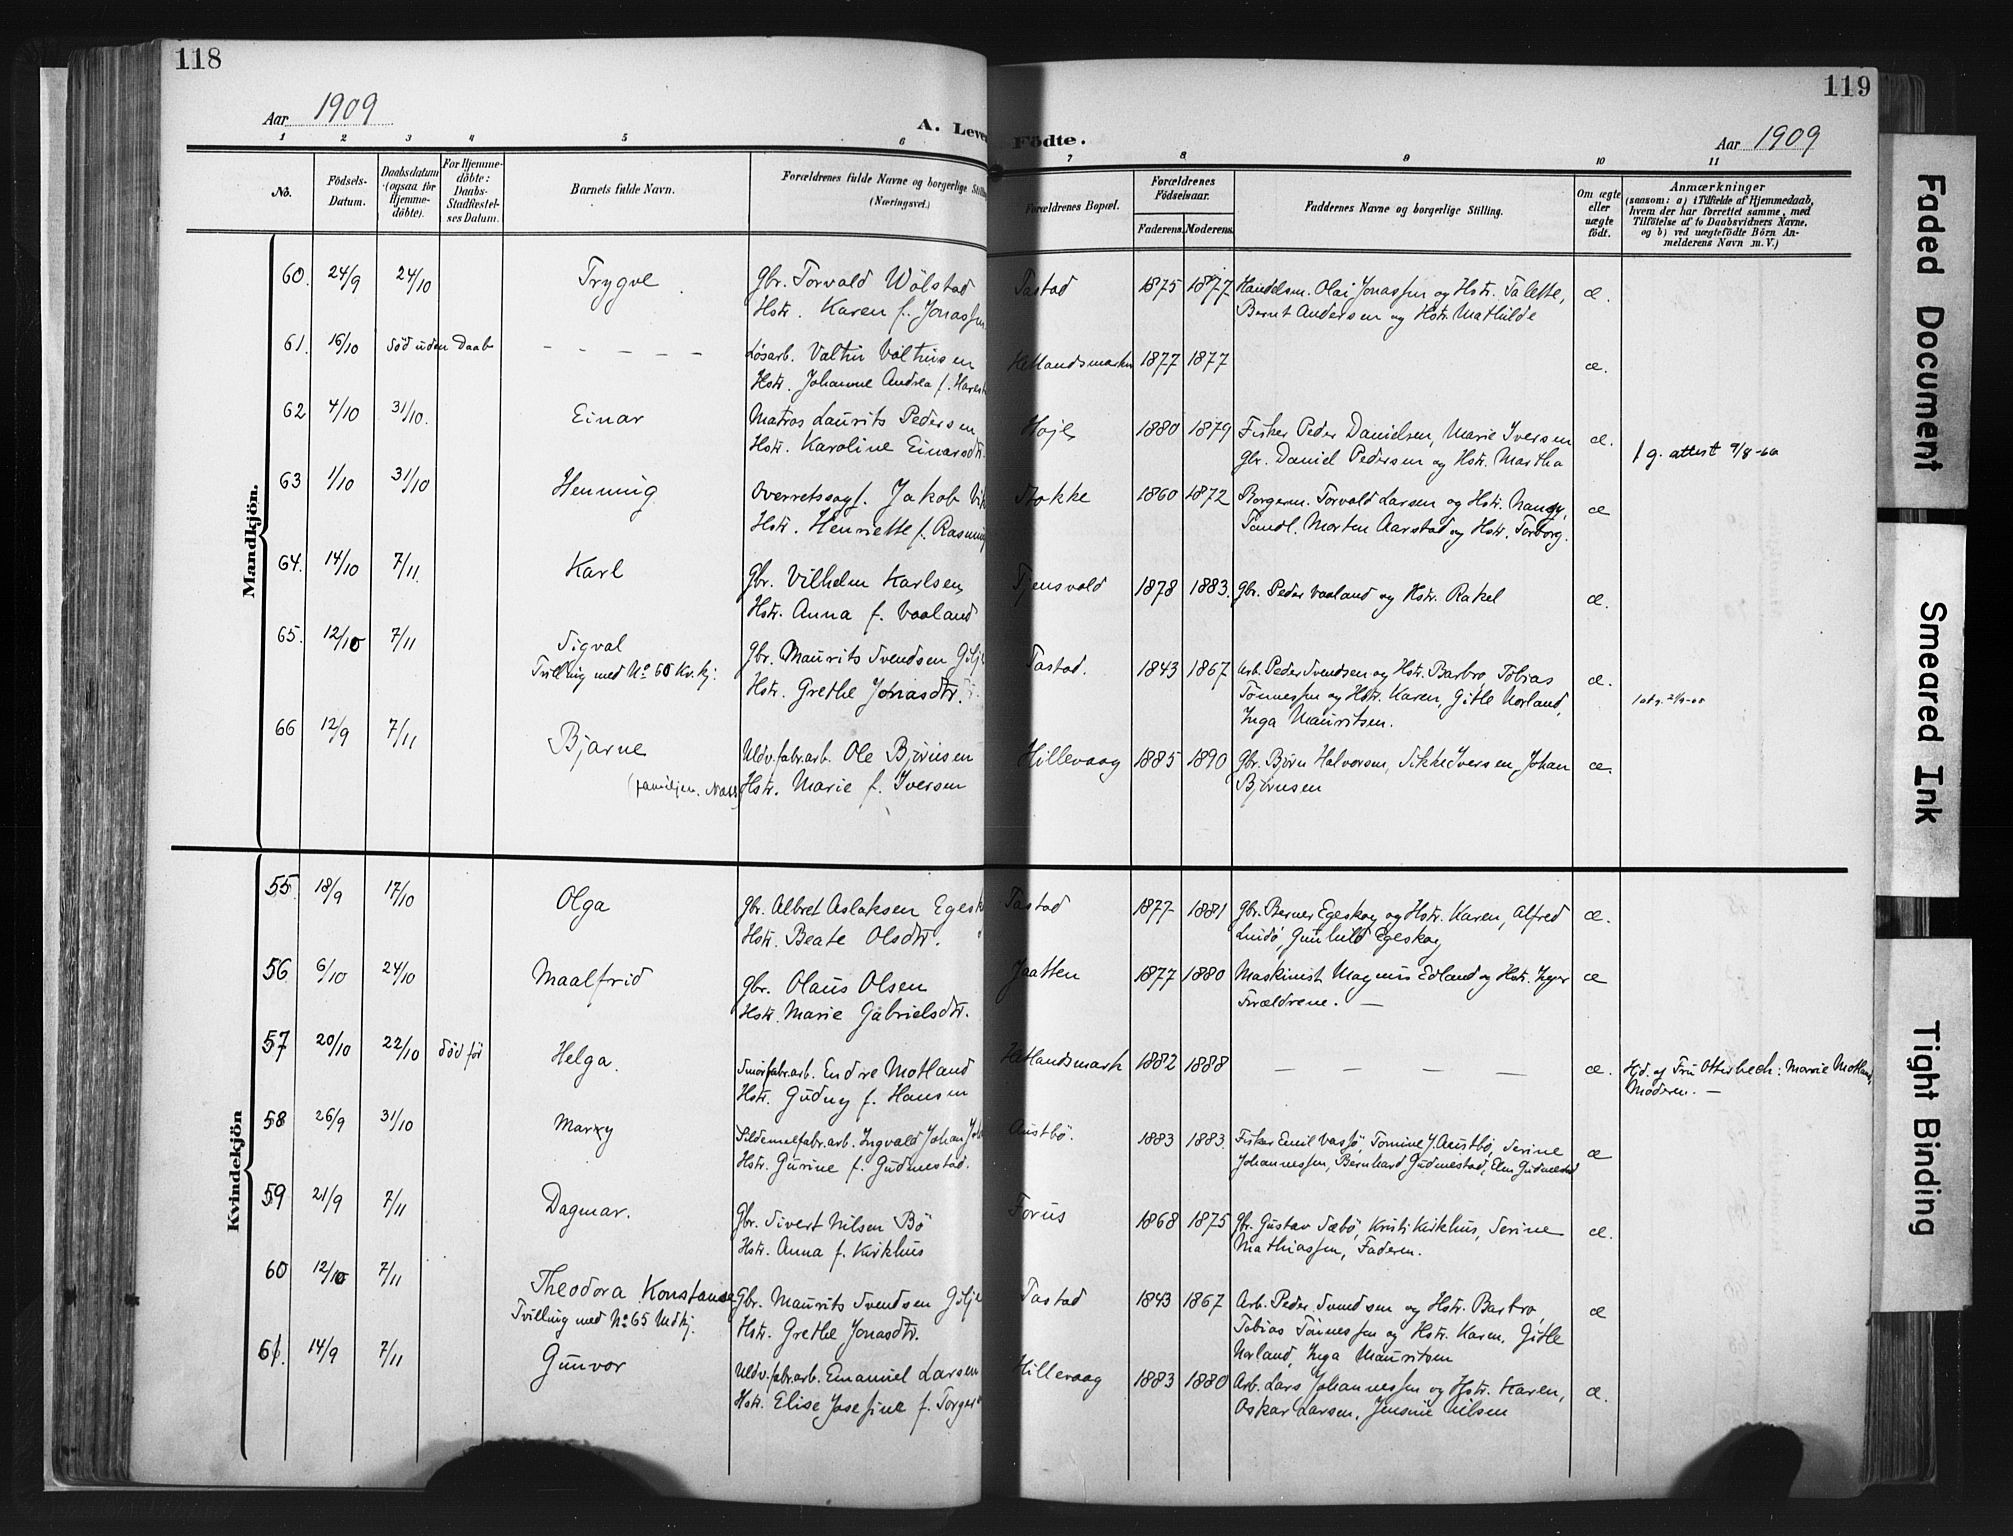 118
Aar 1909
A. Leve
1 2 3 4 5 6
No.
Födsels-Datum.
Daabsdatum (ogsaa for Hjemmedöbte).
For Hjemmedöbte: Daabs-Stadfæstelses Datum.
Barnets fulde Navn.
Forældrenes fulde Navne og borgerlige Stilling (Næringsvei.)
Mandkjön.
60. 24/9 24/10 Trygve Gbr. Torvald Wölstad
Hstr. Karen f. Jonassen
61. 16/10 död uden Daab – – – – – Løsarb. Valtin Valtinsen
Hstr. Johanne Andrea f.
62 4/10 31/10. Einar Matros Laurits Pedersen
Hstr. Karoline Einarsdtr.
63 1/10 31/10 Henning Overretssagf. Jakob
Hstr. Henriette f.
64. 14/10 7/11. Karl Gbr. Vilhelm Karlsen
Hstr. Anna f. Vaaland
65. 12/10 7/11 Sigval Gbr. Maurits Svendsen
Tvilling med No 60 Kv.kj. Hstr. Grethe Jonasdtr.
66 12/9 7/11 Bjarne Uldv.fabr.arb. Ole Björnsen
(familjen. Hstr. Marie f. Iversen
Kvindekjön
55. 18/9 17/10 Olga Gbr. Albret Aslaksen
Hstr. Beate Olsdtr.
56 6/10 24/10 Maalfrid Gbr. Olaus Olsen
Hstr. Marie Gabrielsdtr.
57 20/10 22/10 död før Helga. Smörfabr.arb. Endre Motland
Hstr. Gudny f. Hansen
58 26/9 31/10 Marry Sildemelfabr.arb. Ingvald Johan
Hstr. Gurine f. Gudmestad.
59 21/9 7/11 Dagmar. Gbr. Sivert Nilsen Bö
Hstr. Anna f. Kirkhus
60 12/10 7/11 Theodora Konstanse Gbr. Maurits Svendsen
Tvilling med No 65 Mdkj. Hstr. Grethe Jonasdtr.
61. 14/9 7/11 Gunvor Uldv.fabr.arb. Emanuel Larsen
Hstr. Elise Josefine f.
119
Födte.
Aar 1909
7 8 9 10 11
Forældrenes Bopæl.
Forældrenes Födselsaar.
Faderens. Moderens.
Faddernes Navne og borgerlige Stilling.
Om ægte eller uægte födt.
Anmærkninger
(saasom: a) i Tilfælde af Hjemmedaab,
hvem der har forrettet samme, med
Tilföielse af to Daabsvidners Navne,
og b) ved uægtefödte Börn Anmelderens Navn m. V.)
Tastad 1875 1877 Handelsm. Olai Jonassen og Hstr. Talette, æ.
Bernt Andersen og Hstr. Mathilde
Hetlandsmarken 1877 1877 æ.
1880 1879 Fisker Peder Danielsen, Marie Iversen æ.
Gbr. Daniel Pedersen og Hstr. Martha
g. attest 9/8-60
Stokke 1860 1872 Borgerm. Torvald Larsen og Hstr. Nancy, æ
Tandl. Morten Aarstad og Hstr. Torborg.
Tjensvold 1878 1883. Gbr. Peder Vaaland og Hstr. Rakel æ.
Tastad. 1843 1867 Arb. Peder Svendsen og Hstr. Barbro Tobias æ.
Tönnessen og Hstr. Karen, Gitle Norland,
Inga Mauritsen.
Hillevaag 1885 1890 Gbr. Börn Halvorsen, Sikke Iversen, Johan æ.
Björnsen
Tastad 1877 1881 Gbr. Berner Egeskog og Hstr. Karen, Alfred æ.
Lindö, Gunhild Egeskog
Jaatten 1877 1880 Maskinist Magnus Edland og Hstr. Inger æ
Forældrene. –
Hetlandsmark 1882 1888 – – – – æ. Hjd. af Fru Otterbech: Marie Motland,
Moderen. –
Austbö. 1883 1883. Fisker Emil Vassö, Tomine J. Austbö, Serine æ
Johannessen, Bernhard Gudmestad, Elen Gudmestad
Forus 1868 1875 Gbr. Gustav Sæbö, Kristi Kirkhus, Serine æ.
Mathiassen, Faderen.
Tastad 1843 1867 Arb. Peder Svendsen og Hstr. Barbro æ
Tobias Tönnessen og Hstr. Karen, Gitle
Norland, Inga Mauritsen
Hillevaag 1883 1880 Arb. Lars Johannessen og Hstr. Karen, æ.
Oskar Larsen, Jensine Nilsen
Faded Document
Smeared Ink
Tight Binding